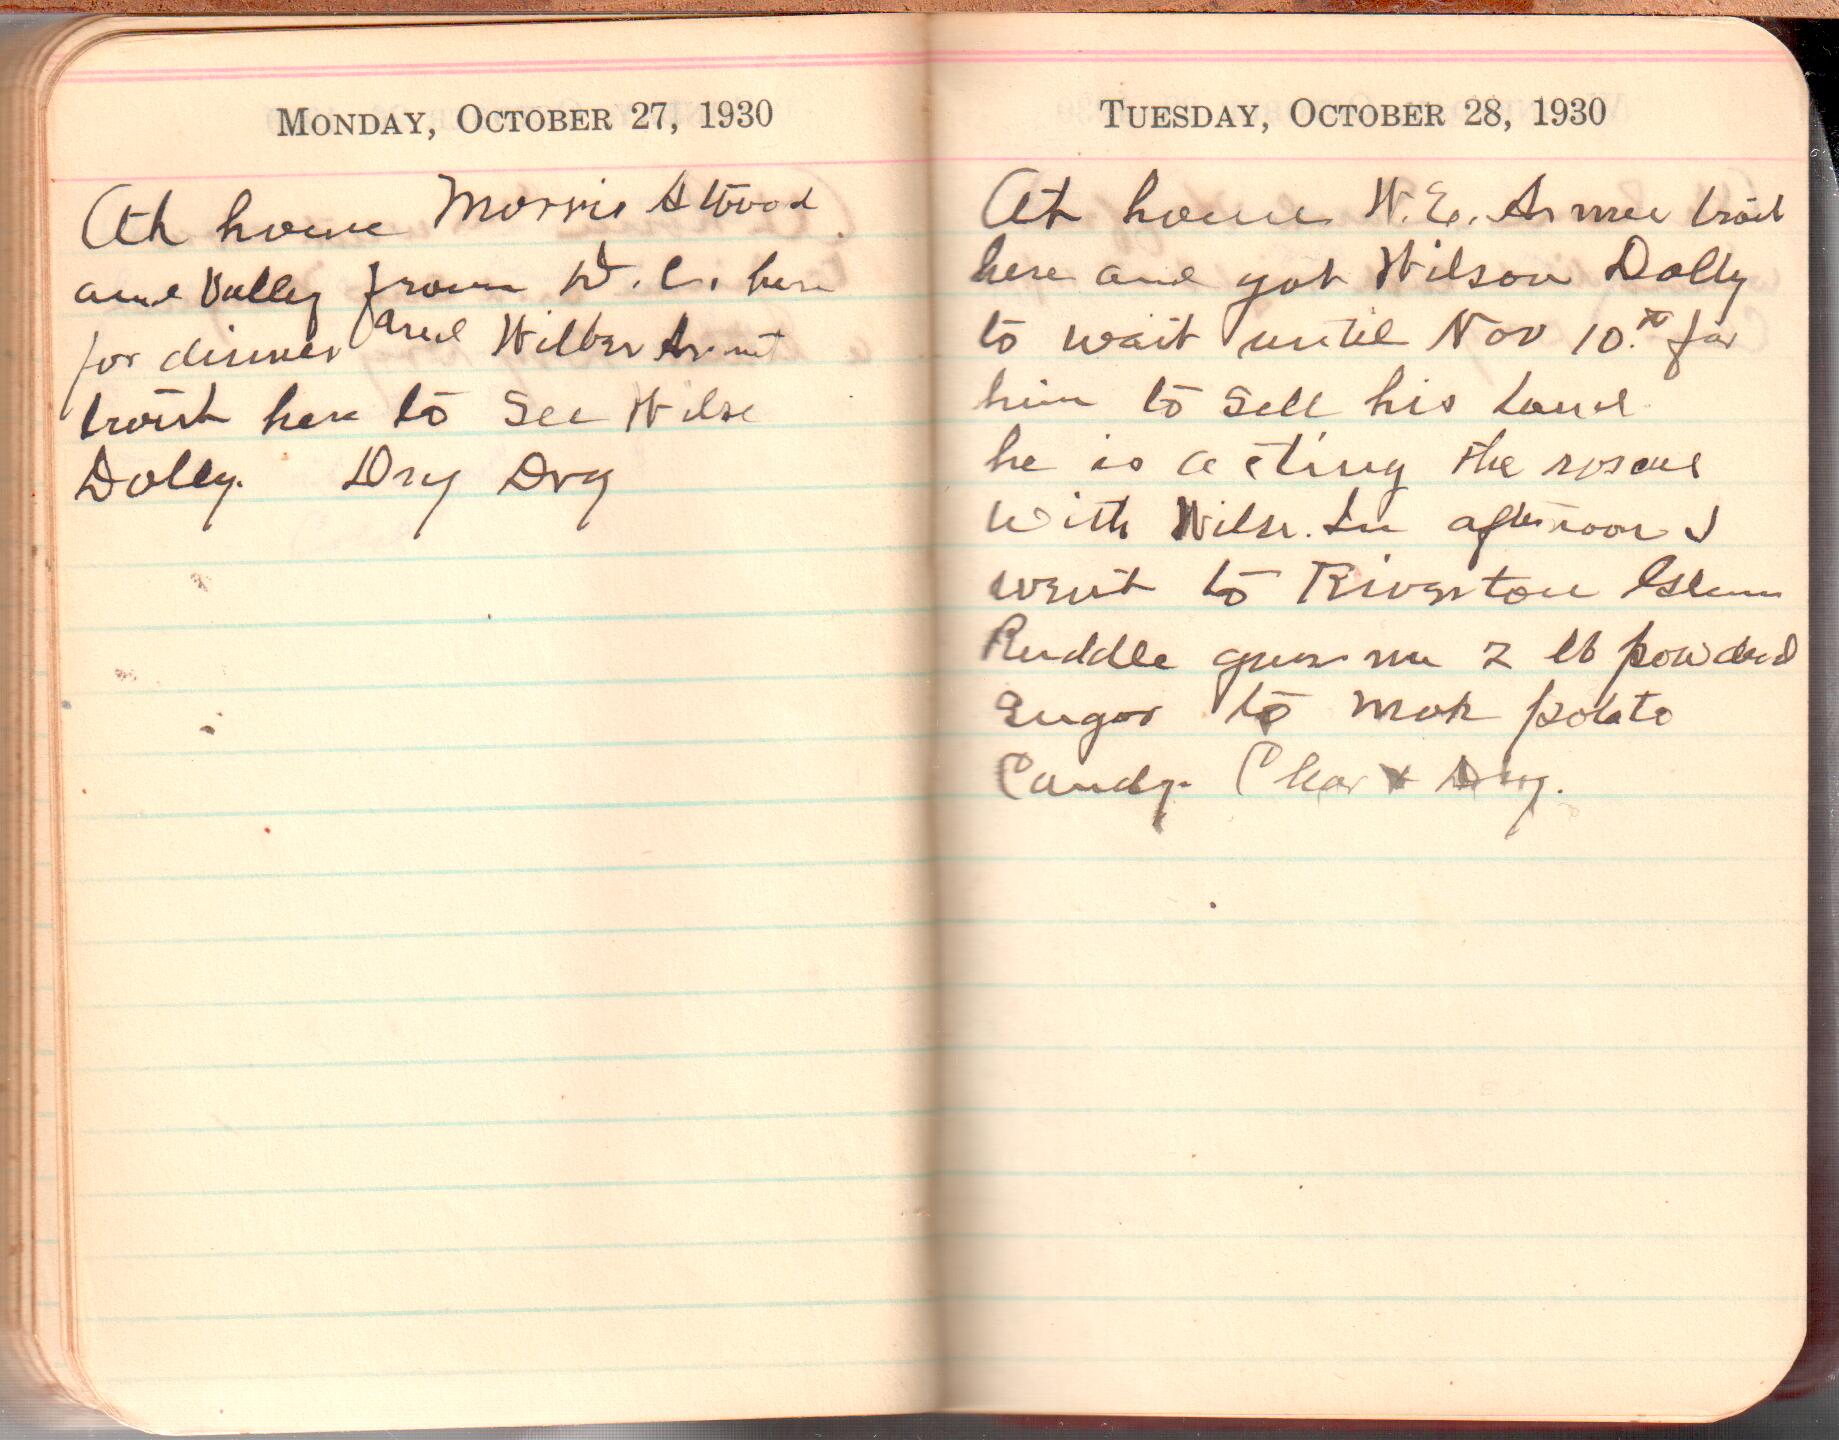 MONDAY, OCTOBER 27, 1930
At home Morris Atwood
and from D.C. here
for dinner and Wilber
here to see Wilse
Dolly. Dry Dry
TUESDAY, OCTOBER 28, 1930
At home W. E.
here and got Wilson Dolly
to wait until Nov 10.th for
him to Sell his Land
he is acting the
with Wilse. In afternoon I
went to Riverton Glenn
Ruddle gave me 2 lb powderd
Sugar to mak potato
Candy. Clear & Dry.